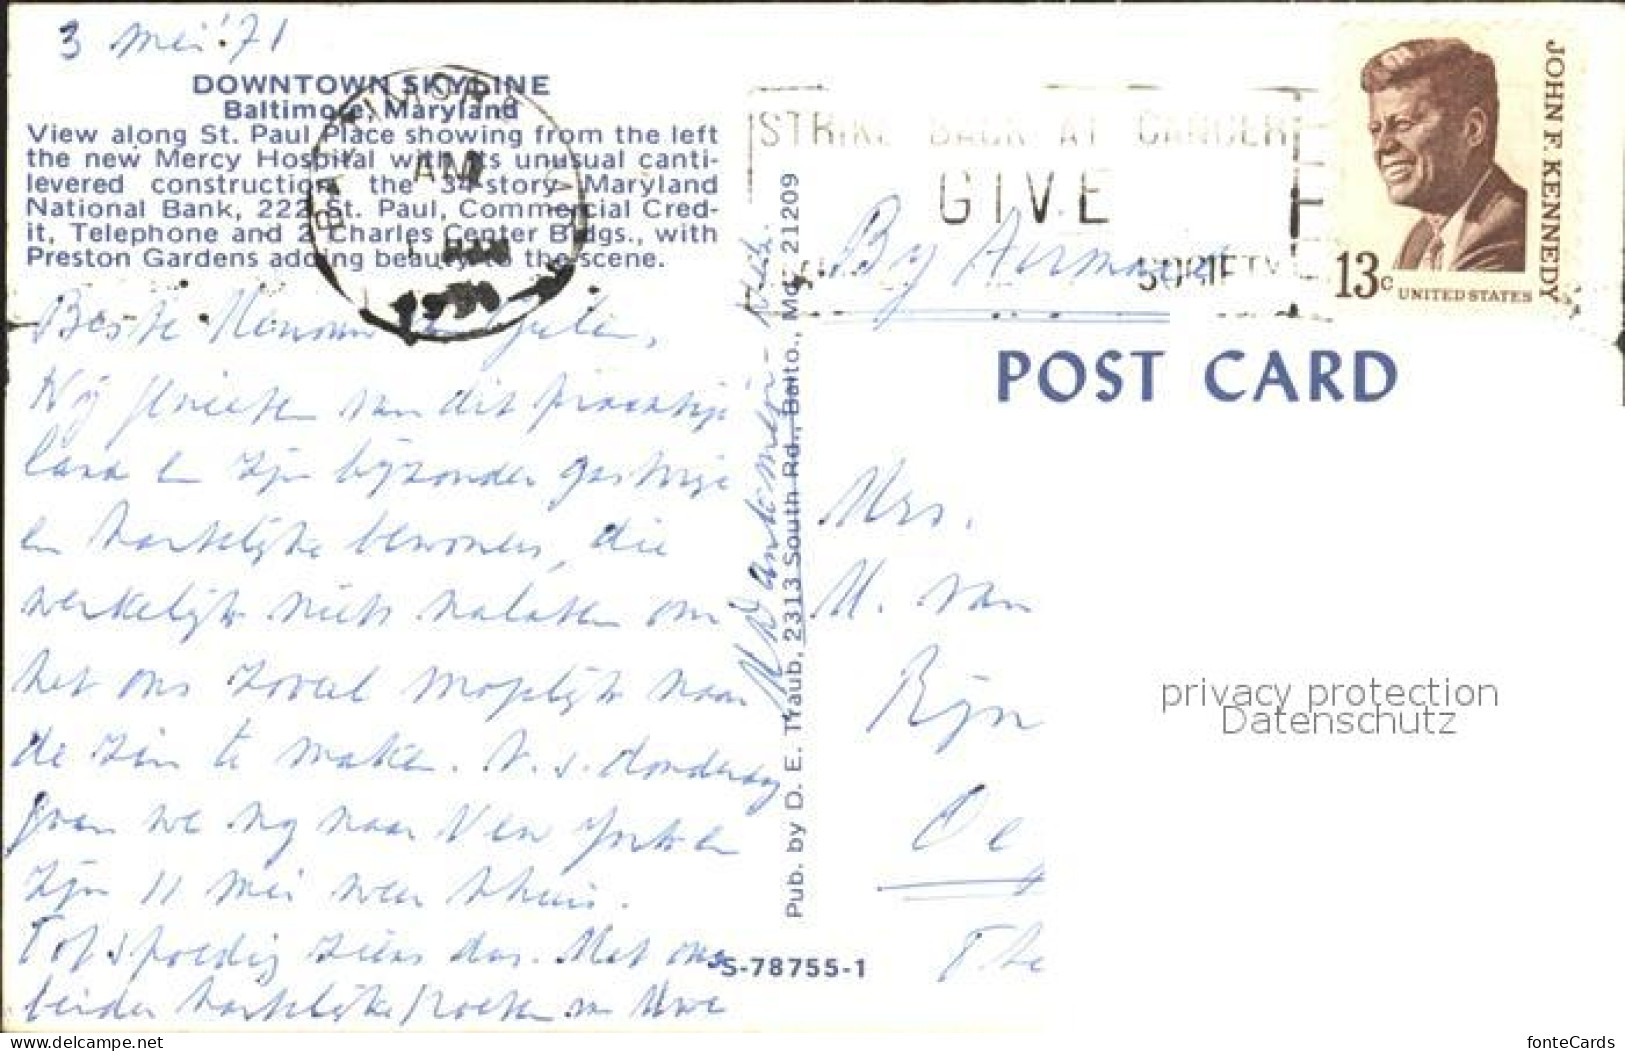 3 mei '71
DOWNTOWN SKYLINE
Baltimore, Maryland
View along St. Paul Place showing from the left
the new Mercy Hospital with its unusual canti-
levered construction, the 34-story Maryland
National Bank, 222 St. Paul, Commercial Cred-
it, Telephone and 2 Charles Center Bldgs., with
Preston Gardens adding beauty to the scene.
Beste
Wij genieten van dit prachtige
land en zijn bijzonder gastvrije
en hartelijke bewoners, die
werkelijk niets nalaten om
het ons zoveel mogelijk naar
de zin te maken. A.s. donderdag
gaan we nog naar New York en
zijn 11 mei weer thuis.
Tot spoedig ziens dus. Met onze
beide hartelijke groeten uw
S-78755-1
Pub. by D. E. Traub, 2313 South Rd., Balto., Md. 21209
BALTIMORE
AM
STRIKE BACK AT CANCER
GIVE
SOCIETY
By Airmail
JOHN F. KENNEDY
13c UNITED STATES
POST CARD
Mrs.
M. van
Rijn
Oe
The
privacy protection
Datenschutz
www.delcampe.net
fonteCards